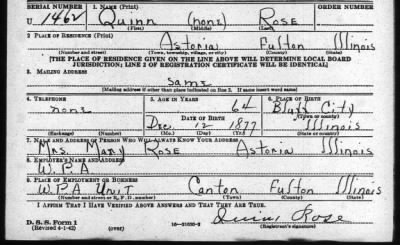 SERIAL NUMBER 1. NAME (Print) ORDER NUMBER
U 1462 Quinn (none) Rose
(First) (Middle) (Last)
2. PLACE OF RESIDENCE (Print)
Astoria Fulton Illinois
(Number and street) (Town, township, village, or city) (County) (State)
[THE PLACE OF RESIDENCE GIVEN ON THE LINE ABOVE WILL DETERMINE LOCAL BOARD
JURISDICTION; LINE 2 OF REGISTRATION CERTIFICATE WILL BE IDENTICAL]
3. MAILING ADDRESS
same
(Mailing address if other than place indicated on line 2. If same insert word same)
4. TELEPHONE 5. AGE IN YEARS 6. PLACE OF BIRTH
none 64 Bluff City
DATE OF BIRTH (Town or county)
Dec. 12 1877 Illinois
(Exchange) (Number) (Mo.) (Day) (Yr.) (State or country)
7. NAME AND ADDRESS OF PERSON WHO WILL ALWAYS KNOW YOUR ADDRESS
Mrs. Mary Rose Astoria Illinois
8. EMPLOYER'S NAME AND ADDRESS
W.P.A
9. PLACE OF EMPLOYMENT OR BUSINESS
W.P.A Unit Canton Fulton Illinois
(Number and street or R. F. D. number) (Town) (County) (State)
I AFFIRM THAT I HAVE VERIFIED ABOVE ANSWERS AND THAT THEY ARE TRUE.
D. S. S. Form 1 Quinn Rose
(Revised 4-1-42) (over) (Registrant's signature)